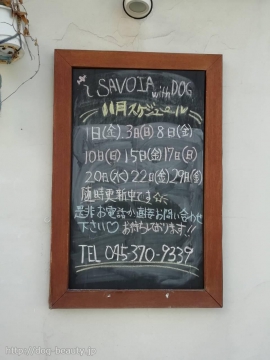 SAVOIA with DOG
11月スケジュール
1日(金) 3日(日) 8日(金)
10日(日) 15日(金) 17日(日)
20日(水) 22日(金) 29日(金)
随時更新中です☆
是非お電話か直接お問い合わせ
下さい♡ お待ちしております!!
TEL 045-370-9339
https://dog-beauty.jp/